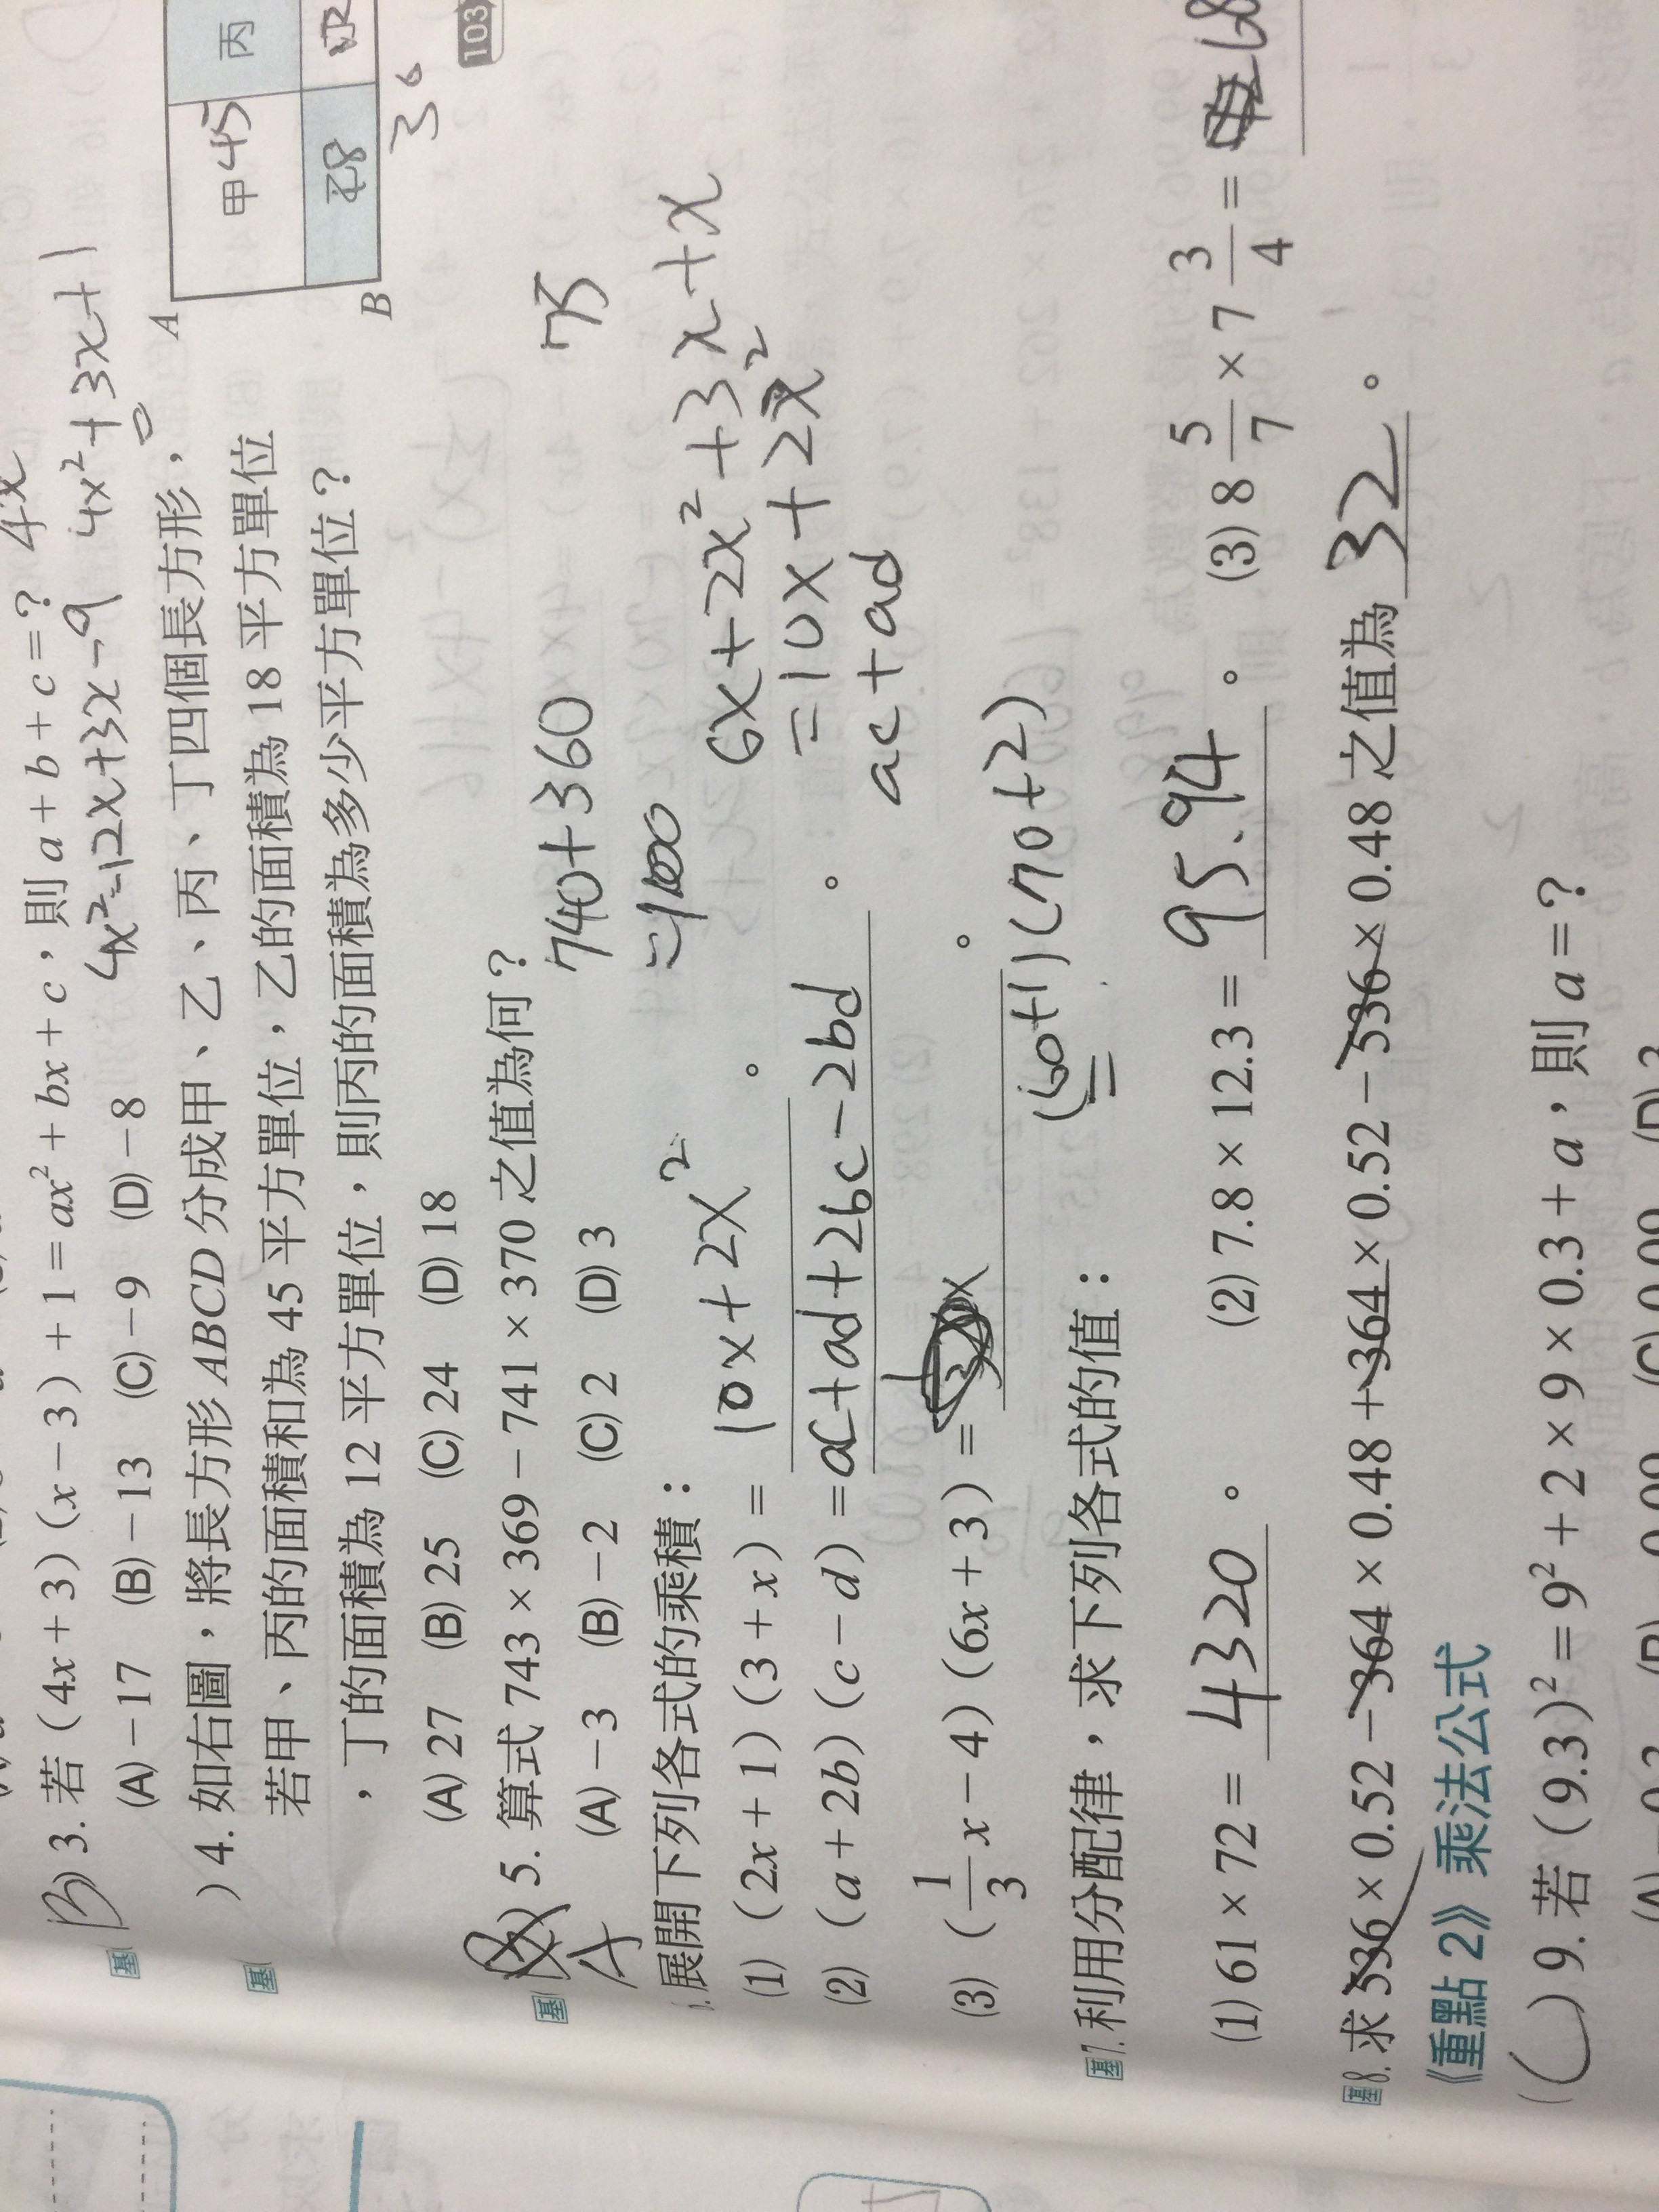 B) 3. 若 (4x+3)(x−3)+1=ax²+bx+c，則 a+b+c=？ 4x
(A)−17 (B)−13 (C)−9 (D)−8
4x²−12x+3x−9 4x²+3x+1
) 4. 如右圖，將長方形 ABCD 分成甲、乙、丙、丁四個長方形，
若甲、丙的面積和為 45 平方單位，乙的面積為 18 平方單位
，丁的面積為 12 平方單位，則丙的面積為多少平方單位？
(A) 27 (B) 25 (C) 24 (D) 18
A
甲 45 丙
B
30
基
基
A
) 5. 算式 743×369−741×370 之值為何？ 75
(A)−3 (B)−2 (C) 2 (D) 3
740+360
=1100
基
展開下列各式的乘積：
(1) (2x+1)(3+x)= 10x+2x² 。
6x+2x²+3x+x
=10x+2x²
(2) (a+2b)(c−d)=ac+ad+2bc−2bd 。
ac+ad
(3) (1/3 x−4)(6x+3)= 。
基7. 利用分配律，求下列各式的值：
(60+1)(70+2)
=
(1) 61×72= 4320 。 (2) 7.8×12.3= 95.94 。 (3) 8 5/7 × 7 3/4 =
基8. 求 536×0.52−364×0.48+364×0.52−536×0.48 之值為 32 。
《重點 2》乘法公式
( ) 9. 若 (9.3)²=9²+2×9×0.3+a，則 a=？
103